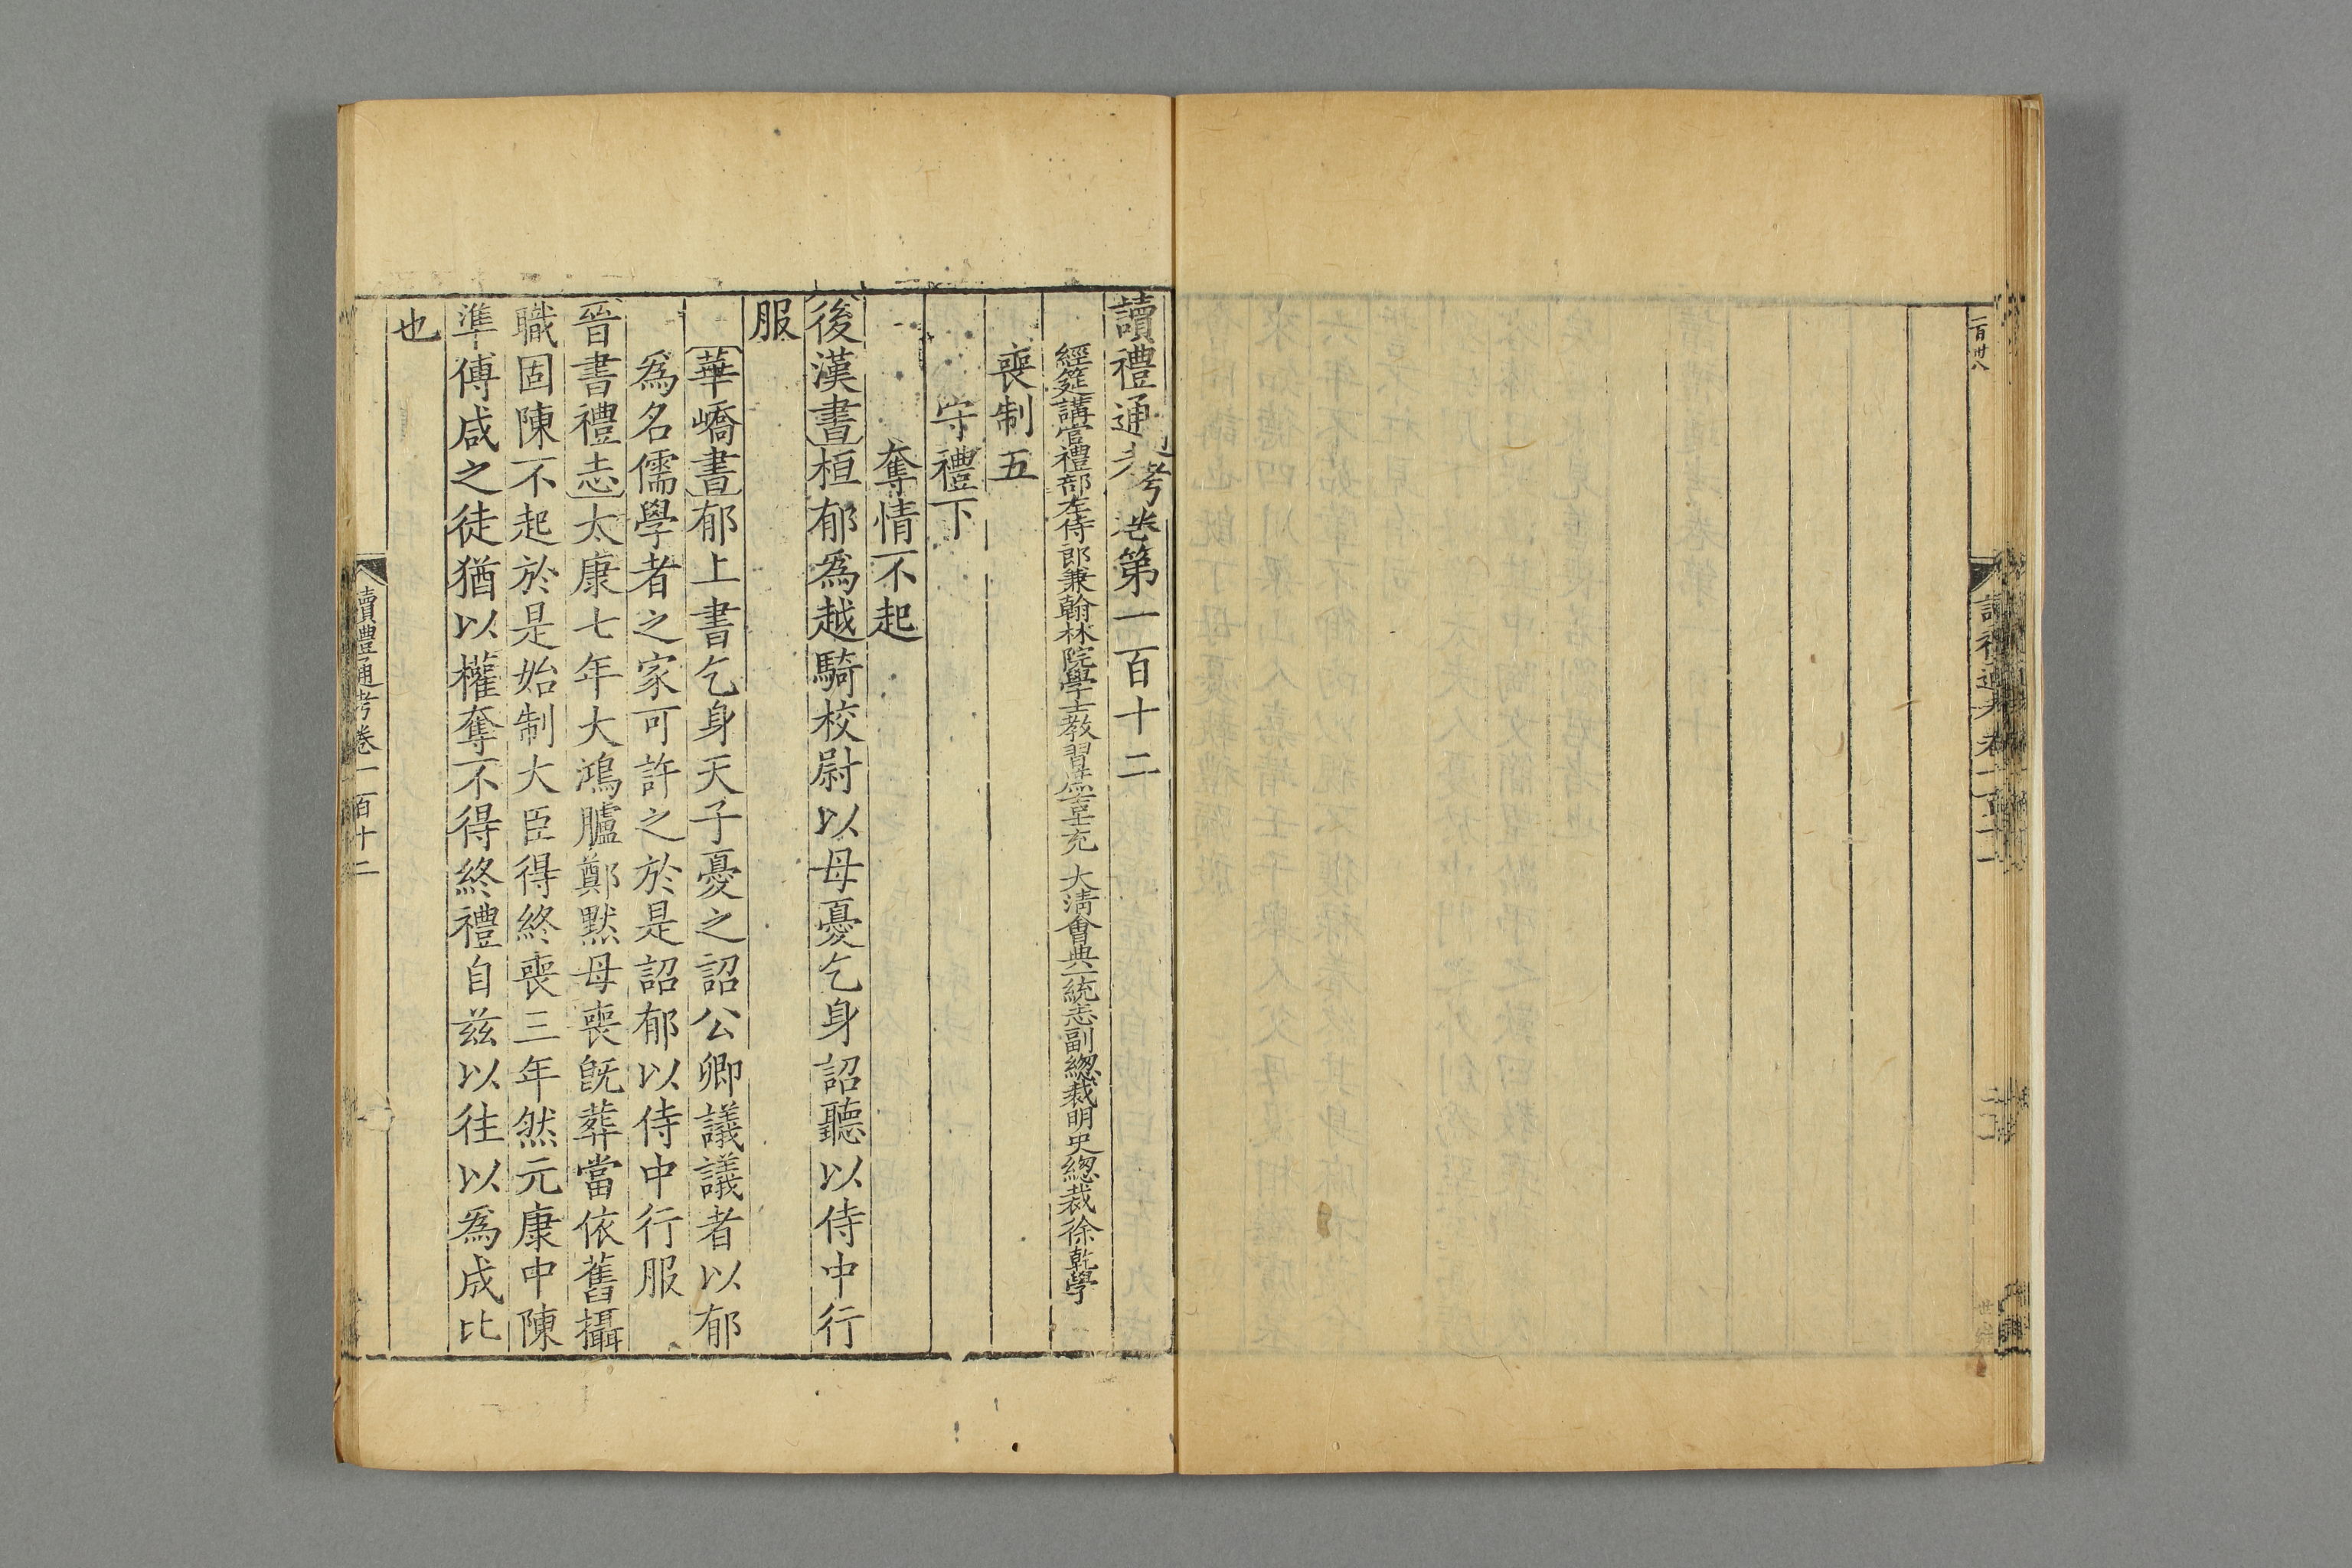 讀禮通考卷第一百十二
經筵講官禮部左侍郎兼翰林院學士教習庶吉士充 大清會典一統志副總裁明史總裁徐乾學
喪制五
守禮下
奪情不起
後漢書桓郁爲越騎校尉以母憂乞身詔聽以侍中行
服
華嶠書郁上書乞身天子憂之詔公卿議議者以郁
爲名儒學者之家可許之於是詔郁以侍中行服
晉書禮志太康七年大鴻臚鄭默母喪旣葬當依舊攝
職固陳不起於是始制大臣得終喪三年然元康中陳
準傅咸之徒猶以權奪不得終禮自兹以往以爲成比
也
讀禮通考卷一百十二
一百卅八